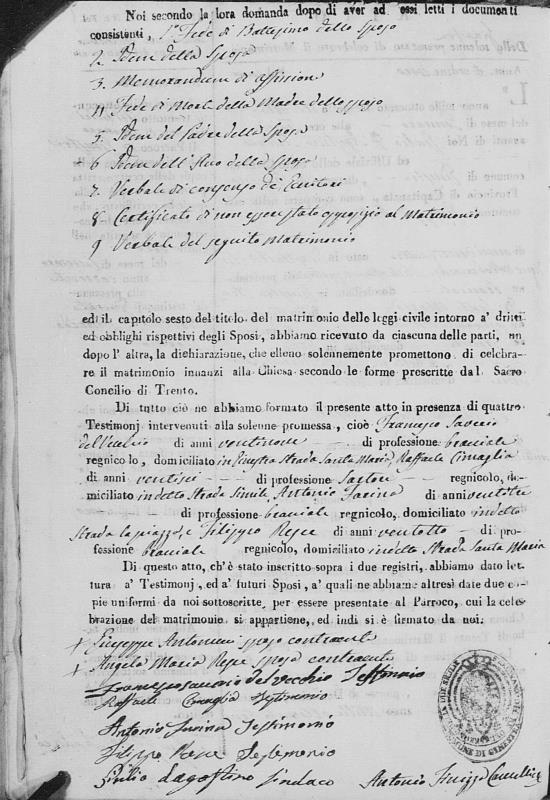 Noi secondo la lora domanda dopo di aver ad essi letti i documenti
consistenti, 1° Fede di Battesimo dello Sposo
2. Idem della Sposa
3. Memorandum di affissione
4. Fede di Morte della Madre dello sposo
5. Idem del Padre della Sposa
6 Idem dell'Avo della Sposa
7. Verbale di consenso de' Genitori
8 Certificato di non essere stato opposizio al Matrimonio
9 Verbale del seguito Matrimonio
ed il capitolo sesto del titolo del matrimonio delle leggi civile intorno a' dritti
ed obblighi rispettivi degli Sposi, abbiamo ricevuto da ciascuna delle parti, un
dopo l' altra, la dichiarazione, che elleno solennemente promettono di celebra-
re il matrimonio innanzi alla Chiesa secondo le forme prescritte dal Sacro
Concilio di Trento.
Di tutto ciò ne abbiamo formato il presente atto in presenza di quattro
Testimonj intervenuti alla solenne promessa, cioè Francesco Saverio
del Vecchio di anni ventinove di professione bracciale
regnicolo, domiciliato in Ginestra Strada Santa Maria, Raffaele Cimaglia
di anni ventisei di professione Sartore regnicolo, do-
miciliato in detto Strada Simile, Antonio Iarina di anni ventotto
di professione bracciale regnicolo, domiciliato in detto
Strada la piazza, e Filippo Repce di anni ventotto di pro-
fessione bracciale regnicolo, domiciliato in detto Strada Santa Maria
Di questo atto, ch'è stato inscritto sopra i due registri, abbiamo dato let-
tura a' Testimonj, ed a' futuri Sposi, a' quali ne abbiamo altresì date due co-
pie uniformi da noi sottoscritte, per essere presentate al Parroco, cui la cele-
brazione del matrimonio si appartiene, ed indi si è firmato da noi.
+ Giuseppe Antonucci sposo contraente
+ Angela Maria Repce sposa contraente
Francesco saverio del vecchio Testimonio
Raffaele Cimaglia Testimonio
Antonio Iarina Testimonio
Filippo Repce Testemonio
D'agostino Sindaco Antonio